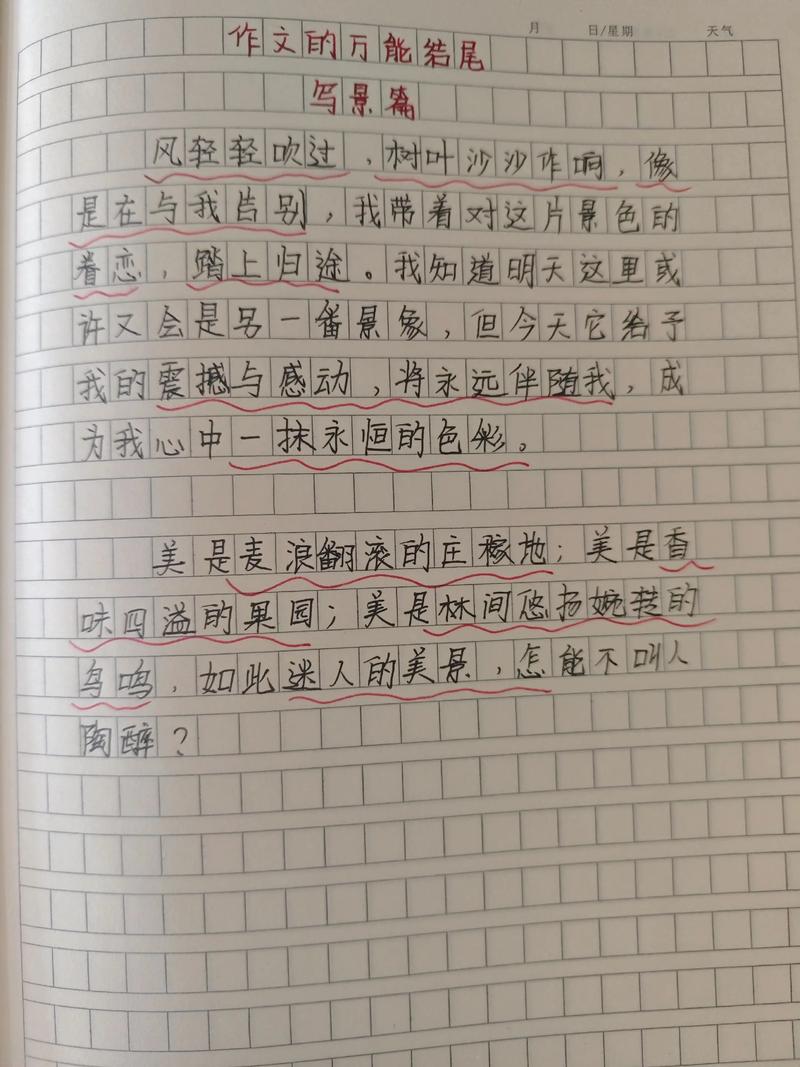 月 日/星期 天气
作文的万能结尾
写景篇
风轻轻吹过，树叶沙沙作响，像
是在与我告别，我带着对这片景色的
眷恋，踏上归途。我知道明天这里或
许又会是另一番景象，但今天它给予
我的震撼与感动，将永远伴随我，成
为我心中一抹永恒的色彩。
美是麦浪翻滚的庄稼地；美是香
味四溢的果园；美是林间悠扬婉转的
鸟鸣，如此迷人的美景，怎能不叫人
陶醉？